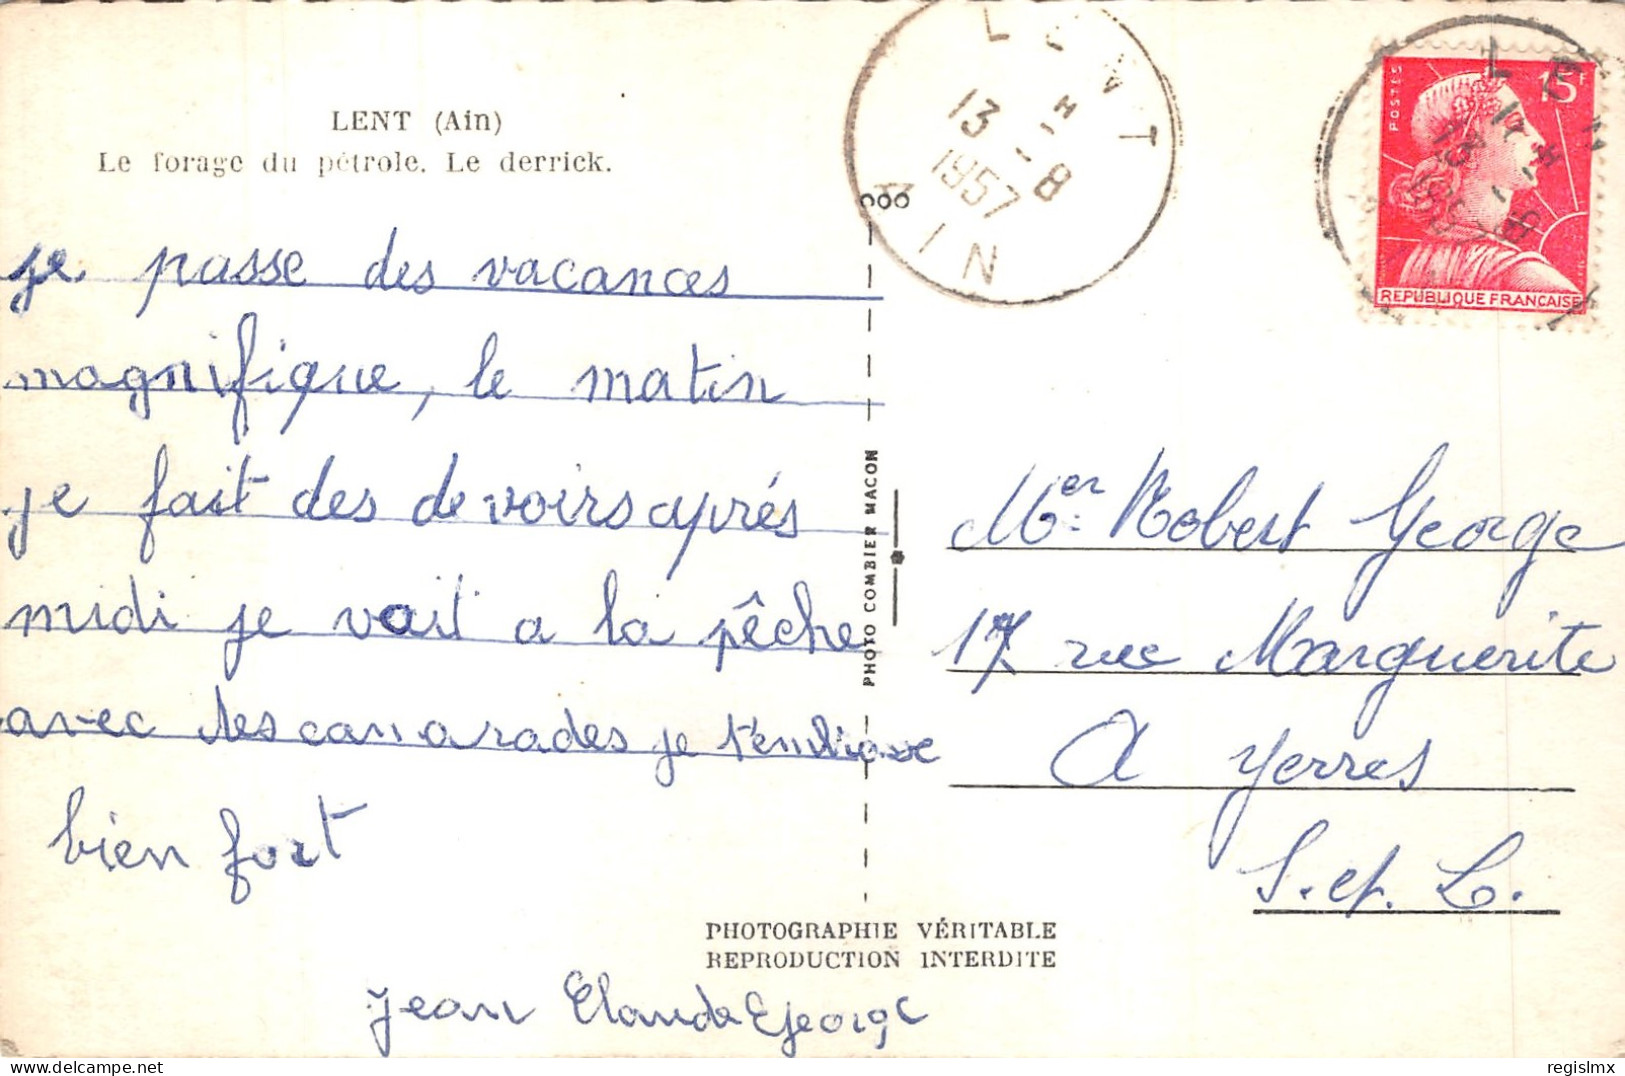 LENT (Ain)
Le forage du pétrole. Le derrick.
je passe des vacances
magnifique, le matin
je fait des devoirs après
midi je vait a la pêche
avec des camarades je t'embrasse
bien fort
Jean Claude George
PHOTO COMBIER MACON
PHOTOGRAPHIE VÉRITABLE
REPRODUCTION INTERDITE
LENT
13 H
1957 8
AIN
POSTES
15F
REPUBLIQUE FRANÇAISE
Mer Robert George
17 rue Marguerite
A Yerres
S. et. L.
regislmx